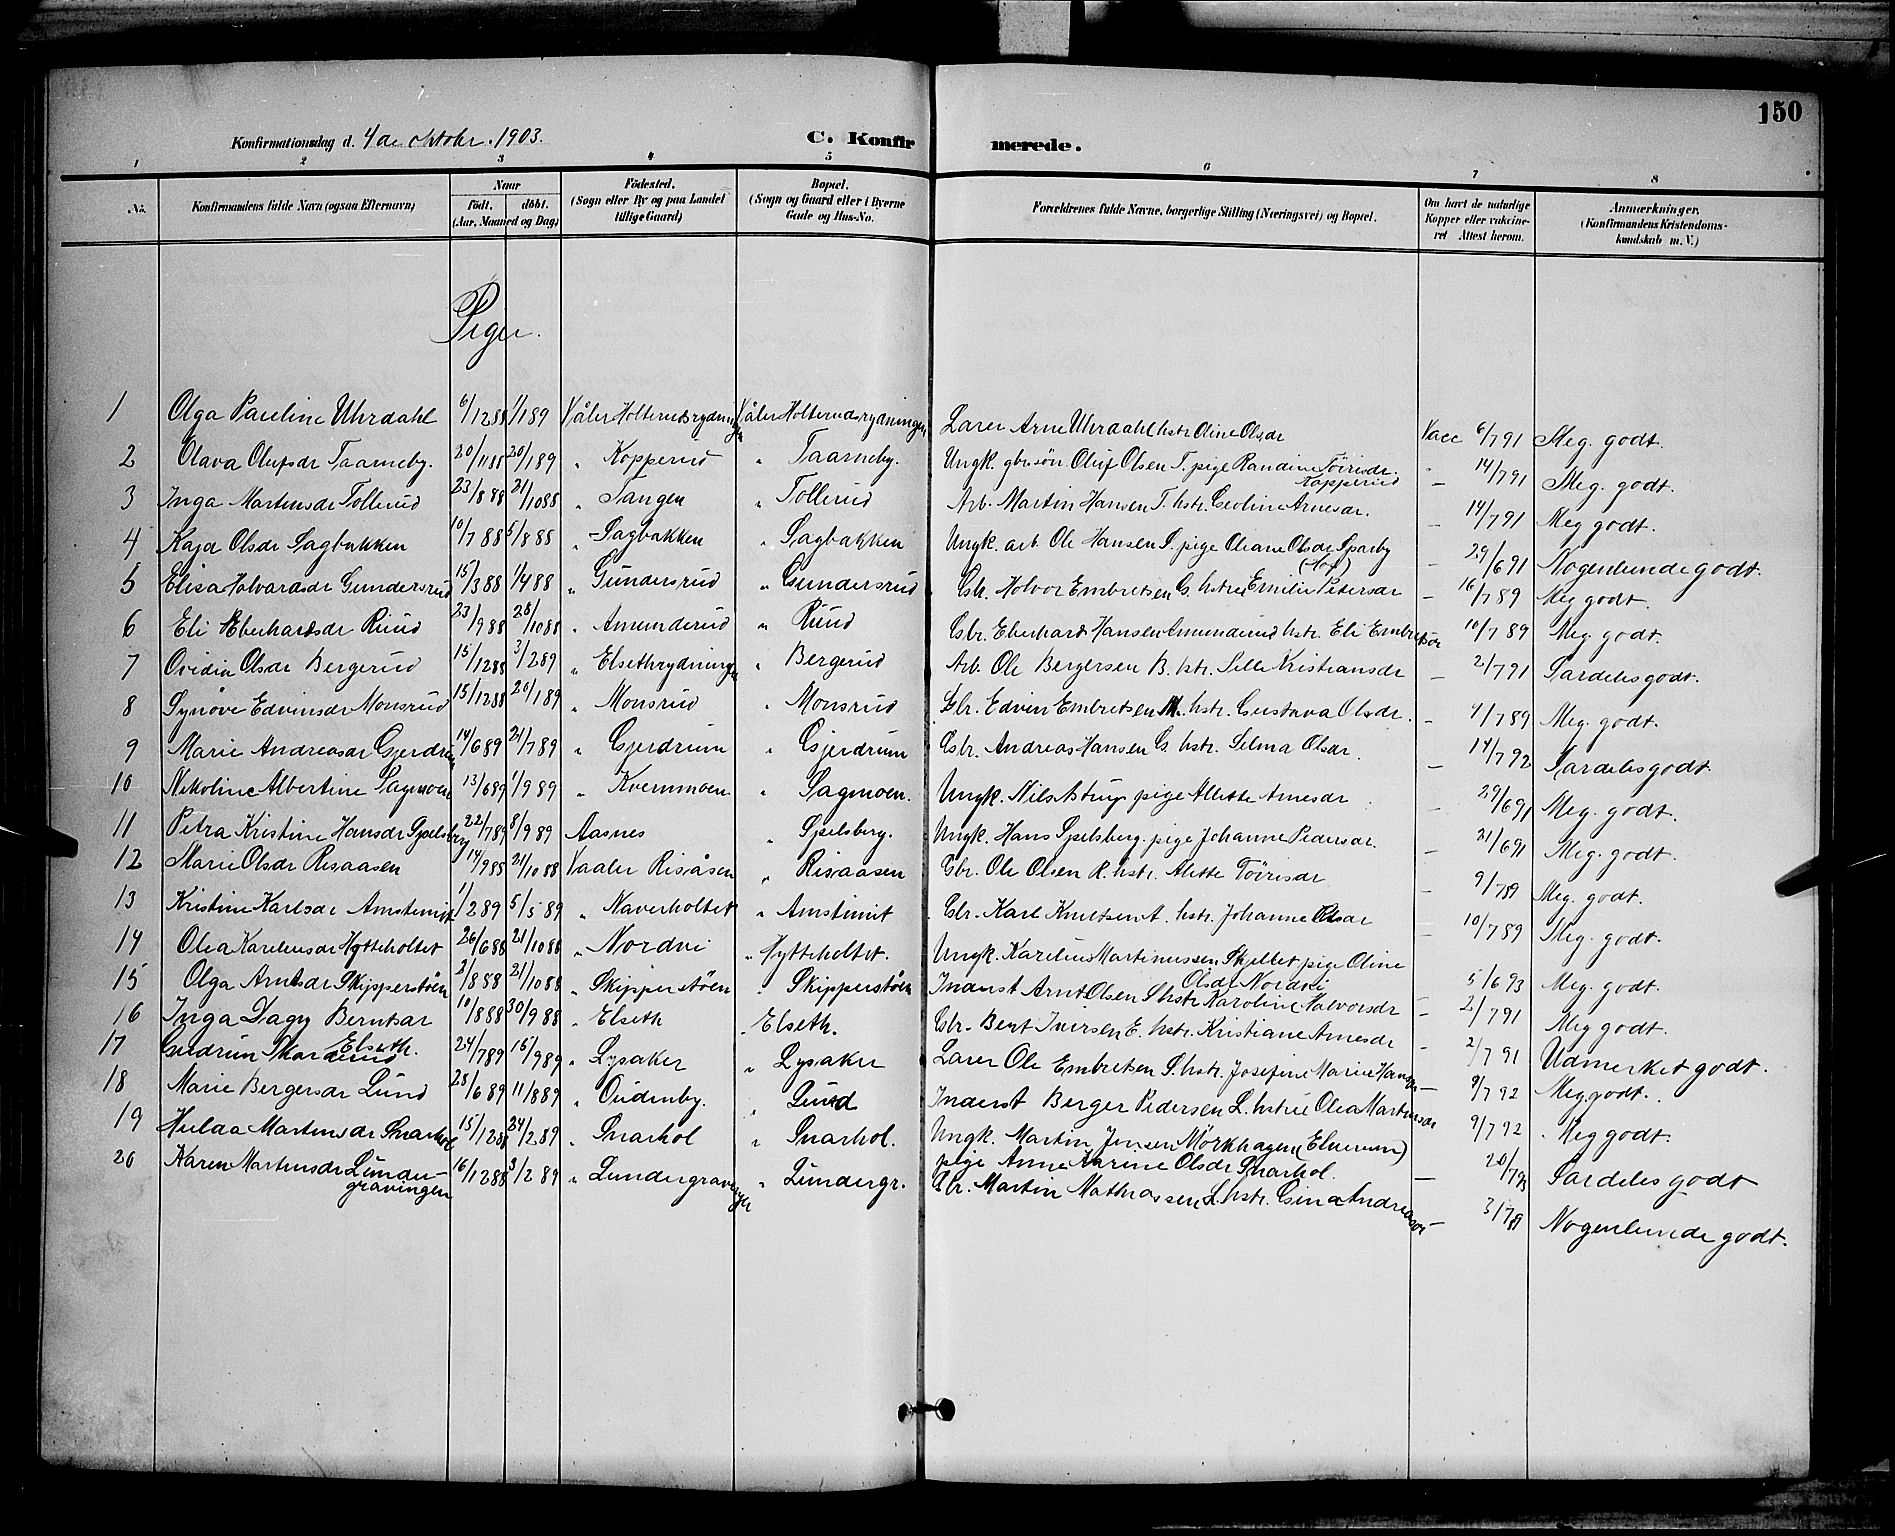 150
Konfirmationsdag d. 4de Oktober 1903. C. Konfirmerede.
1 2 3 4 5 6 7 8
No. Konfirmandens fulde Navn (ogsaa Efternavn) Naar Födt. döbt. (Aar, Maaned og Dag) Födested. (Sogn eller By og paa Landet tillige Gaard) Bopæl. (Sogn og Gaard eller i Byerne Gade og Hus-No. Forældrenes fulde Navne, borgerlige Stilling (Næringsvei) og Bopæl. Om havt de naturlige Kopper eller vakcineret Attest herom. Anmærkninger, (Konfirmandens Kristendomskundskab m. V.)
Piger.
1 Olga Pauline Uhrdahl 6/12 88 1/1 89 Våler Holterudsrydningen Våler Holterudsrydningen Lærer Arne Uhrdahl hstr Oline Olsdr Vacc 6/7 91 Meg. godt.
2 Olava Olufsdr Taarneby. 20/11 88 20/1 89 " Kopperud " Taarneby. Ungk. gbrsön Oluf Olsen T. pige Randine Töirisdr. Kopperud " 14/7 91 Meg. godt.
3 Inga Martinsdr Tollerud 23/8 88 21/10 88 " Tangen " Tollerud Arb. Martin Hansen T. hstr. Gioline Arnesdr. — 14/7 91 Meg godt.
4 Kaja Olsdr Sagbakken 10/7 88 5/8 88 " Sagbakken " Sagbakken Ungk. arb. Ole Hansen S. pige Oleane Olsdr Sparby (Hof) — 29/6 91 Nogenlunde godt.
5 Elisa Halvorsdr Gundersrud 15/3 88 1/4 88 " Gundersrud " Gundersrud Gbr. Holvor Embretsen G. hstru Emilie Petersdr — 16/7 89 Meg godt.
6 Eli Eberhardsdr Ruud 23/9 88 28/10 88 " Amunderud " Ruud Gbr. Eberhard Hansen Amunderud hstr. Eli Embretsdr 10/7 89 Meg. godt.
7 Ovidia Olsdr Bergerud 15/12 88 3/2 89 " Elsethrydningen " Bergerud Arb. Ole Bergersen B. hstr. Sille Kristiansdr — 2/7 91 Særdeles godt.
8 Synöve Edvinsdr Monsrud 15/12 88 20/1 89 " Monsrud " Monsrud Gbr. Edvin Embretsen M. hstr. Gustava Olsdr. — 4/7 89 Meg. godt.
9 Marie Andreasdr Gjerdrum 14/6 89 21/7 89 " Gjerdrum " Gjerdrum Gbr. Andreas Hansen G. hstr. Selma Olsdr. — 14/7 92 Særdeles godt.
10 Nikoline Albertine Sagmoen 13/6 89 1/9 89 " Kvernmoen " Sagmoen. Ungk. Nils Astrup pige Alette Arnesdr — 29/6 91 Meg. godt.
11 Petra Kristine Hansdr Spelsberg 22/7 89 8/9 89 Aasnes " Spelsberg. Ungk. Hans Spelsberg. pige Johanne Pedersdr. — 21/6 91 Meg. godt.
12 Marie Olsdr Risaasen 14/9 88 21/10 88 Vaaler Risåsen " Risaasen Gbr. Ole Olsen R. hstr. Alette Töirisdr — 9/7 89 Meg. godt.
13 Kristine Karlsdr 1/2 89 5/5 89 " Naverholtet " Gbr. Karl Knutsen A. hstr. Johanne Olsdr — 10/7 89 Meg. godt.
14 Olea Kareliusdr Hytteholtet 26/6 88 21/10 88 " Nordvi " Hytteholtet. Ungk. Karelius Martinussen Skjellet pige Oline Olsdr Nordvi 5/6 93 Meg. godt.
15 Olga Arntsdr Skipperstöen 2/8 88 21/10 88 " Skipperstöen " Skipperstöen Inderst Arnt Olsen S hstr Karoline Halvorsdr — 2/7 91 Meg godt.
16 Inga Dagny Berntsdr Elseth. 10/8 88 30/9 88 " Elseth " Elseth. Gbr. Bernt Iversen E. hstr. Kristiane Arnesdr — 2/7 91 Udmerket godt.
17 Gudrun Skarderud 24/7 89 15/9 89 " Lysaker " Lysaker Lærer Ole Embretsen S. hstr. Josefine Marie — 9/7 92 Meg godt.
18 Marie Bergersdr Lund 28/6 89 11/8 89 " Oudenby. " Lund Inderst Berger Pedersen L. hstru Olea Martinsdr 9/7 92 Meg godt.
19 Hulda Martinsdr Snarhol 15/12 88 24/2 89 " Snarhol " Snarhol. Ungk. Martin Jensen Mörkhagen (Elverum) pige Anne Karine Olsdr Snarhol. — 20/7 93 Særdeles godt
20 Karen Martinsdr Lundergravingen 16/12 88 3/2 89 " Lundergravingen " Lundergr. Gbr. Martin Mathiassen L. hstr. Gina Andreasdr — 3/7 89 Nogenlunde godt.